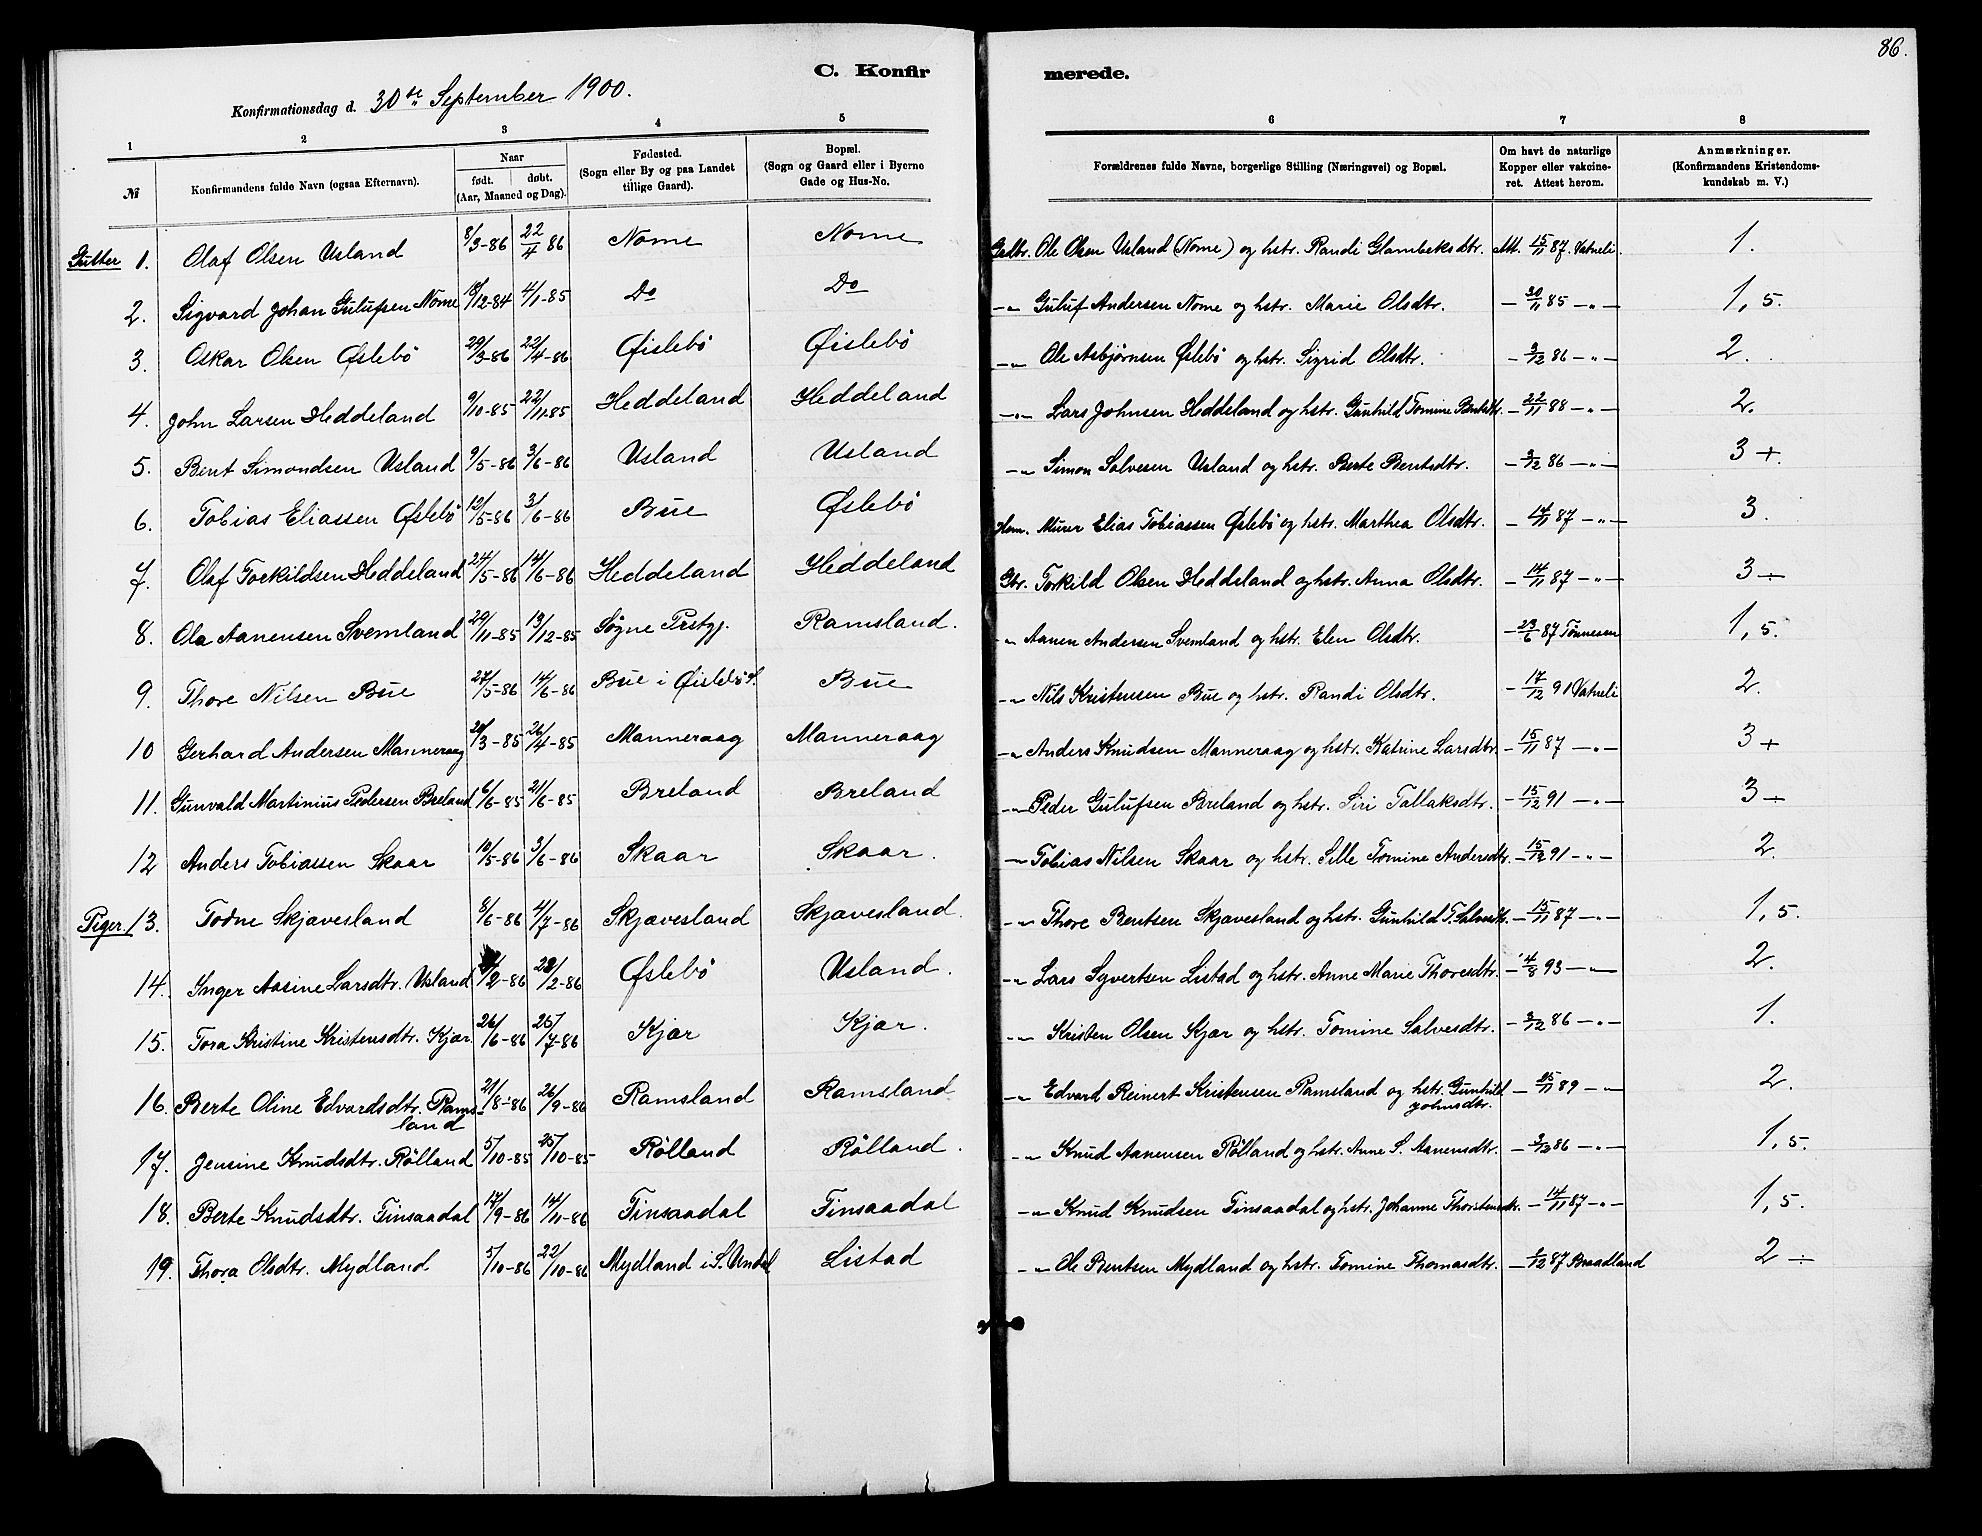 86.
C. Konfirmerede.
Konfirmationsdag d. 30te September 1900.
1 2 3 4 5 6 7 8
№ Konfirmandens fulde Navn (ogsaa Efternavn). Naar født. døbt. (Aar, Maaned og Dag). Fødested. (Sogn eller By og paa Landet tillige Gaard). Bopæl. (Sogn og Gaard eller i Byerne Gade og Hus-No. Forældrenes fulde Navne, borgerlige Stilling (Næringsvei) og Bopæl. Om havt de naturlige Kopper eller vakcineret. Attest herom. Anmærkninger. (Konfirmandens Kristendomskundskab m. V.)
Gutter 1. Olaf Olsen Usland 8/3-86 22/4 86 Nome Nome Grdbr. Ole Olsen Usland (Nome) og hstr. Randi Glambeksdtr. Att. 15/11 87. Vatneli. 1.
2. Sigvard Johan Gulufsen Nome 18/12-84 4/1-85 Do Do -"- Guluf Andersen Nome og hstr. Marie Olsdtr. - 30/11 85 -"- 1,5.
3. Oskar Olsen Øslebö 29/3-86 22/4-86 Øislebö Øislebö -"- Ole Asbjørnsen Øslebö og hstr. Sigrid Olsdtr. - 3/12 86 -"- 2.
4. John Larsen Heddeland 9/10-85 22/11-85 Heddeland Heddeland -"- Lars Johnsen Heddeland og hstr. Gunhild Tomine Bentsdtr. - 22/11 88 -"- 2.
5. Bent Simondsen Usland 9/5-86 3/6-86 Usland Usland -"- Simon Salvesen Usland og hstr. Berte Bentsdtr. - 3/12 86 -"- 3 +.
6. Tobias Eliassen Øslebö 12/5-86 3/6-86 Bue Øslebö Hsm. Murer Elias Tobiassen Øslebö og hstr. Marthea Olsdtr. - 14/11 87 -"- 3.
7. Olaf Torkildsen Heddeland 24/5-86 14/6-86 Heddeland Heddeland Gbr. Torkild Olsen Heddeland og hstr. Anna Olsdtr. - 14/11 87 -"- 3 ÷
8. Ola Aanensen Svemland 29/11-85 13/12-85 Søgne Prstgj. Ramsland. -"- Aanen Andersen Svemland og hstr. Elen Olsdtr. - 23/6 87 Tønnesen 1,5.
9. Thore Nilsen Bue 27/5-86 14/6-86 Bue i Øislebö S. Bue -"- Nils Kristensen Bue og hstr. Randi Olsdtr. - 17/12 91 Vatneli 2.
10 Gerhard Andersen Manneraag /3-85 26/4-85 Manneraag Manneraag -"- Anders Knudsen Manneraag og hstr. Katrine Larsdtr. - 15/11 87 -"- 3 +
11. Gunvald Martinius Pedersen Breland 6/6-85 21/6-85 Breland Breland -"- Peder Gulufsen Breland og hstr. Siri Tallaksdtr. - 15/12 91 -"- 3 ÷
12 Anders Tobiassen Skaar 10/5-86 3/6-86 Skaar Skaar. -"- Tobias Nilsen Skaar og hstr. Sille Tomine Andersdtr. - 15/12 91 -"- 2.
Piger. 13. Todne Skjævesland 8/6-86 4/7-86 Skjævesland Skjævesland. -"- Thore Bentsen Skjævesland og hstr. Gunhild T. Salvesdtr. - 15/11 87 -"- 1,5.
14. Inger Aasine Larsdtr. Usland /2-86 28/2-86 Øslebö Usland. -"- Lars Syvertsen Listad og hstr. Anne Marie Thoresdtr. - 4/8 93 -"- 2.
15. Tora Kristine Kristensdtr. Kjær 26/6-86 25/7-86 Kjær Kjær. -"- Kristen Olsen Kjær og hstr. Tomine Salvesdtr. - 3/12 86 -"- 1.
16. Berte Oline Edvardsdtr. Ramsland 21/8-86 26/9-86 Ramsland Ramsland -"- Edvard Reinert Kristensen Ramsland og hstr. Gunhild Johnsdtr. - 25/11 89 -"- 2.
17. Jensine Knudsdtr. Rölland 5/10-85 25/10-85 Rölland Rölland. -"- Knud Aanensen Rölland og hstr. Anne S. Aanensdtr. - 3/12 86 -"- 1,5.
18. Berte Knudsdtr. Finsaadal 17/9-86 14/11-86 Finsaadal Finsaadal -"- Knud Knudsen Finsaadal og hstr. Johanne Thorstensdtr. - 14/11 87 -"- 1,5.
19. Thora Olsdtr. Mydland 5/10-86 22/10-86 Mydland i S. Undal Listad -"- Ole Bentsen Mydland og hstr. Tomine Thomasdtr. - 1/12 87 Braadland 2 ÷